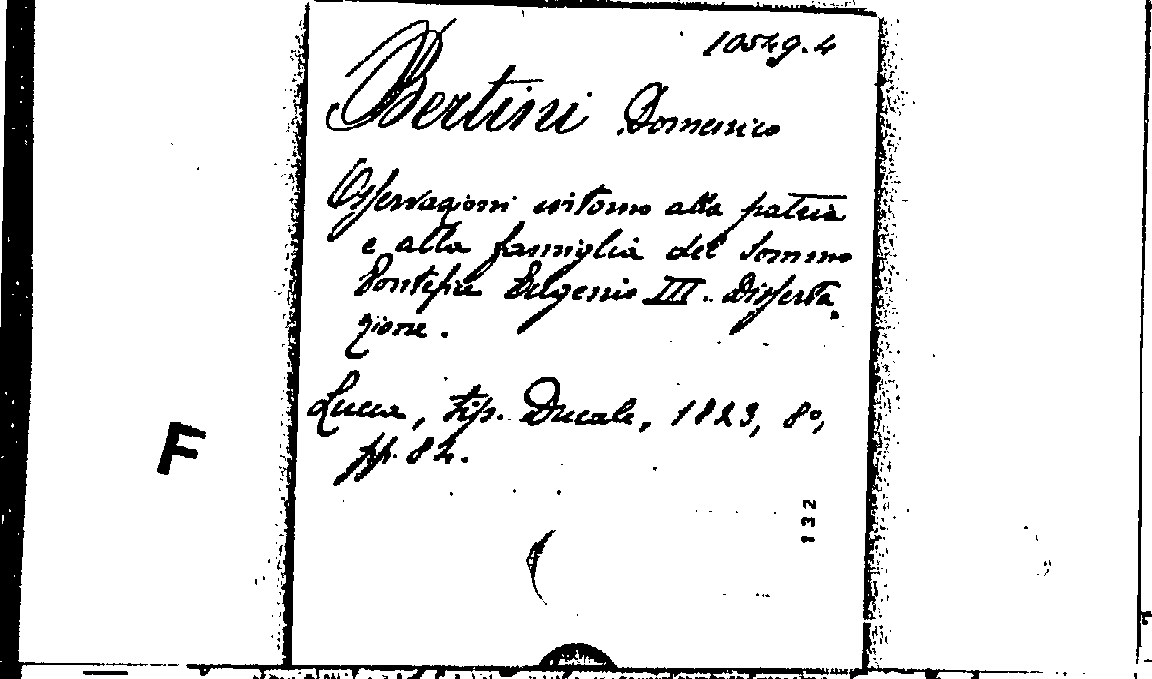 10549.4
Bertini Domenico
Osservazioni intorno alla patria
e alla famiglia del Sommo
Pontefice Eugenio III. Disserta
zione.
Lucca, tip. Ducale, 1823, 8º,
pp. 84.
F
132